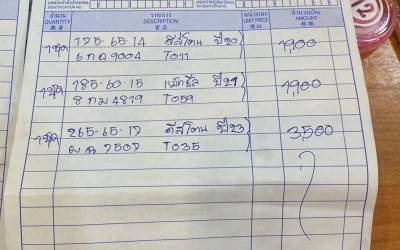 จำนวน QUANTITY 数量 รายการ DESCRIPTION 货名 หน่วยละ UNIT PRICE จำนวนเงิน AMOUNT
1ชุด 195-65-14 ดีสโตน ปี20 1900
6กถ 9004 T011
1ชุด 185-60-15 ปี21 1,900
8กม 4819 T059
1ชุด 265-65-17 ดีสโตน ปี23 3,500
ผด 7507 T035